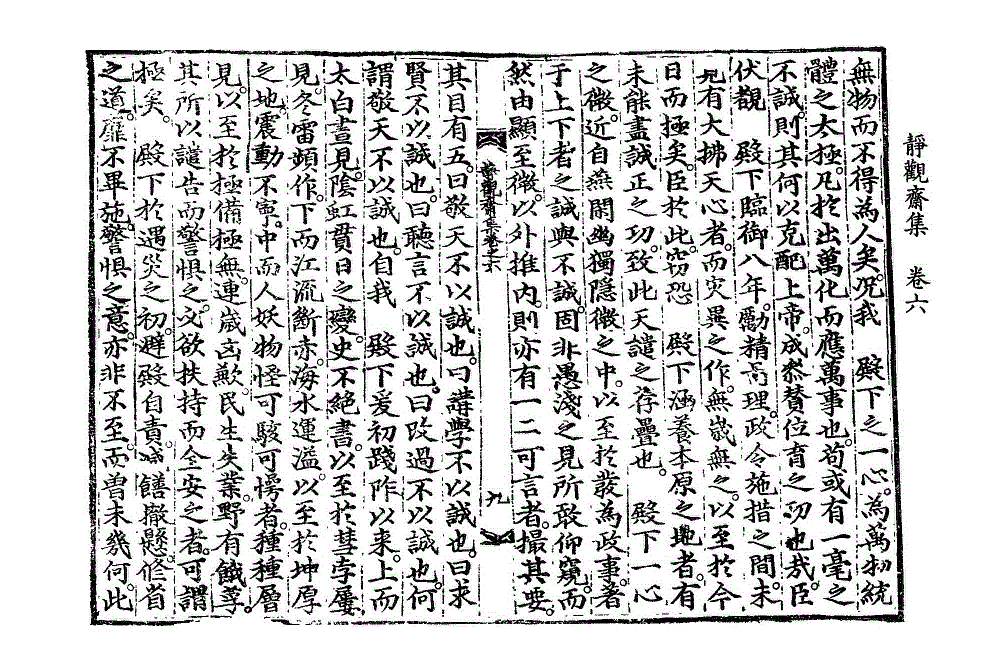 靜觀齋集　卷六
無物而不得為人矣。况我　殿下之一心。為萬物統
體之太極。凡於出萬化而應萬事也。苟或有一毫之
不誠。則其何以克配上帝。成叅贊位育之功也哉。臣
伏觀　殿下臨御八年。勵精啇理。政令施措之間。未
見有大拂天心者。而灾異之作。無歲無之。以至於今
日而極矣。臣於此。窃恐　殿下涵養本原之地者。有
未能盡誠正之功。致此天譴之荐疊也。　殿下一心
之微。近自燕閒幽獨隱微之中。以至於發為政事。著
于上下者之誠與不誠。固非愚淺之見所敢仰窺。而
然由顯至微。以外推内。則亦有一二可言者。撮其要。
靜觀齋集卷之六
九
其目有五。曰敬天不以誠也。曰講學不以誠也。曰求
賢不以誠也。曰聽言不以誠也。曰改過不以誠也。何
謂敬天不以誠也。自我　殿下爰初踐阼以来。上而
太白晝見。陰虹貫日之變。史不絶書。以至於彗孛屢
見。冬雷頻作。下而江流斷赤。海水運溢。以至於坤厚
之地。震動不寧。中而人妖物怪可駭可愕者。種種層
見。以至於極備極無。連歲凶歉。民生失業。野有餓莩。
其所以譴告而警惧之。又欲扶持而全安之者。可謂
極矣。　殿下於遇災之初。避殿自責。减饍撤懸。修省
之道。靡不畢施。警惧之意。亦非不至。而曾未幾何。此